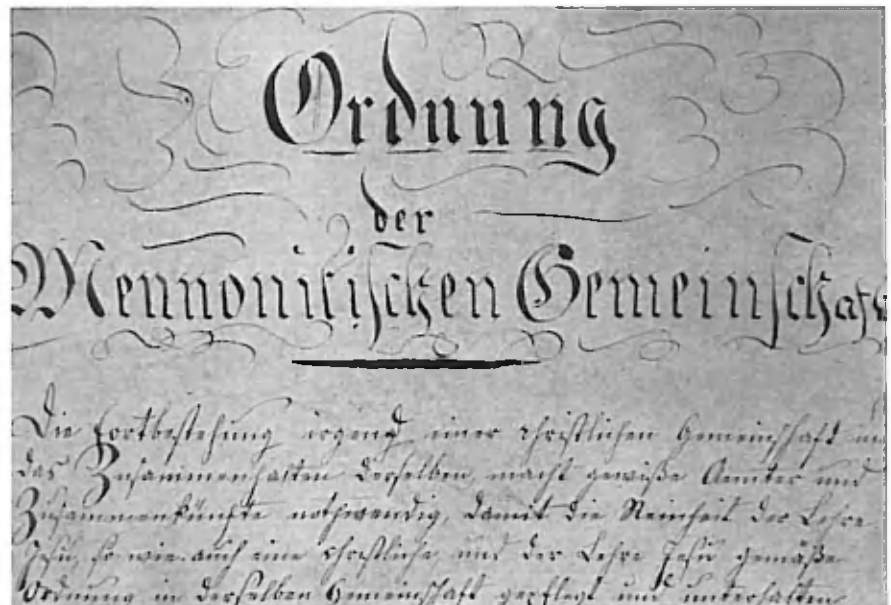 Ordnung
der
Mennonitischen Gemeinschaft
Die Fortbestehung irgend einer christlichen Gemeinschaft und
das Zusammenhalten derselben, macht gewiße Aemter und
Zusammenkünfte nothwendig, damit die Reinheit der Lehre
Jesu, so wie auch eine christliche, und der Lehre Jesu gemäße
Ordnung in derselben Gemeinschaft gepflegt und unterhalten